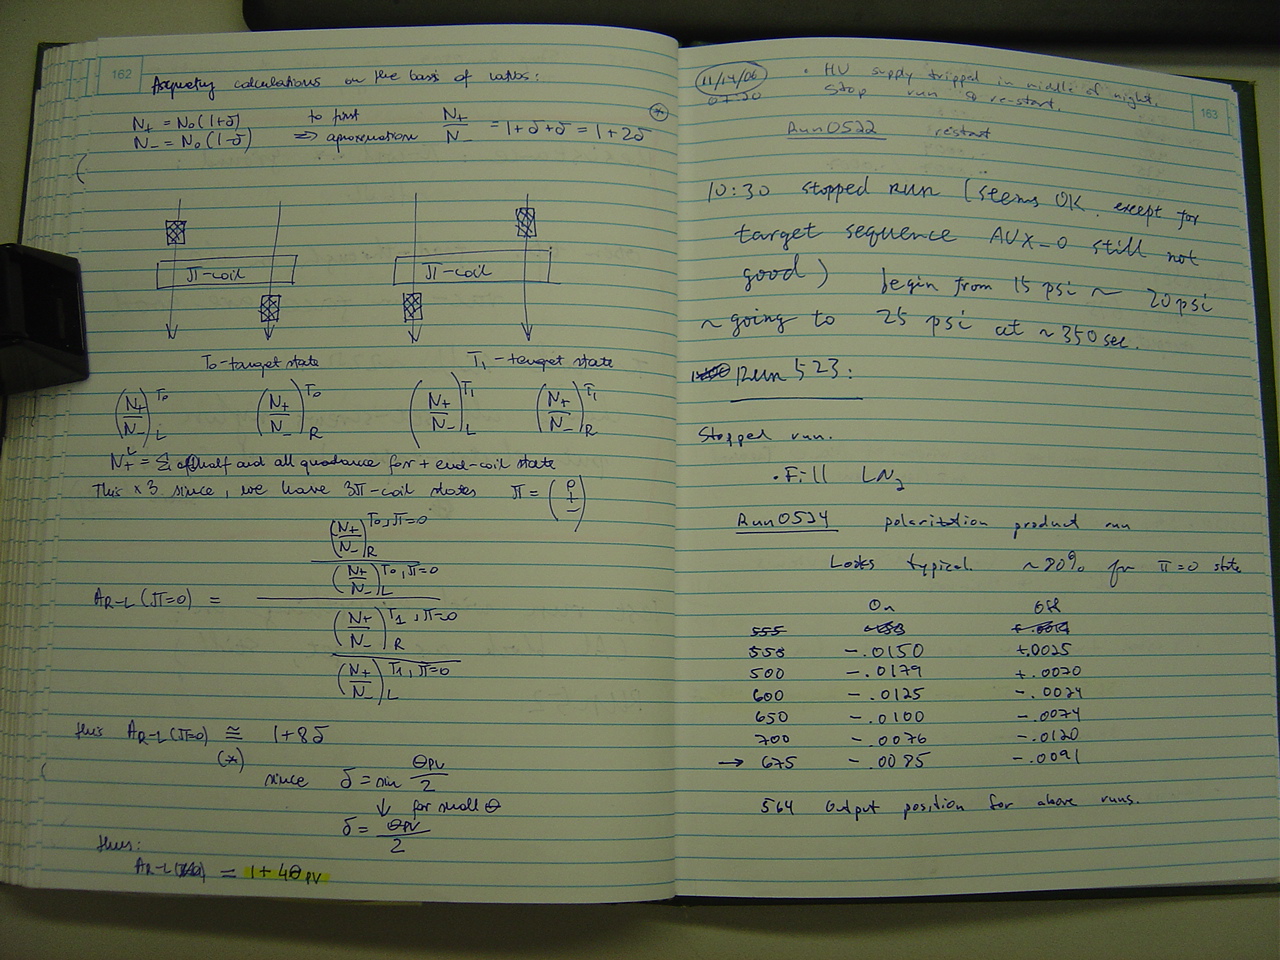 162
Asymetry calculations on the basis of ratios:
N+ = No(1+δ)
N- = No(1-δ)
to first
=> aproximation N+/N- = 1+δ+δ = 1+2δ
(*)
π-coil
π-coil
To-target state
T1-target state
(N+/N-)L^To (N+/N-)R^To (N+/N-)L^T1 (N+/N-)R^T1
N+^L = Σ of half and all quadance for + end-coil state
This ×3 since, we have 3π-coil states π = (0 + -)
A R-L (π=0) = [(N+/N-)R^To,π=0 / (N+/N-)L^To,π=0] / [(N+/N-)R^T1,π=0 / (N+/N-)L^T1,π=0]
thus A R-L (π=0) ≅ 1+8δ
(*)
since δ = sin θPV/2
↓ for small θ
δ = θPV/2
thus:
A R-L = 1+4θPV
163
11/14/06
07:30
• HV supply tripped in middle of night.
Stop run & re-start.
Run0522 restart
10:30 stopped run (seems OK except for
target sequence AUX_0 still not
good) begin from 15 psi ~ 20psi
~ going to 25 psi at ~350sec.
Run 523:
Stopped run.
• Fill LN2
Run0524 polarization product run
Looks typical. ~80% for π=0 state
On Off
555
550 -.0150 +.0025
500 -.0179 +.0020
600 -.0125 -.0024
650 -.0100 -.0074
700 -.0076 -.0120
→ 675 -.0085 -.0091
564 Output position for above runs.